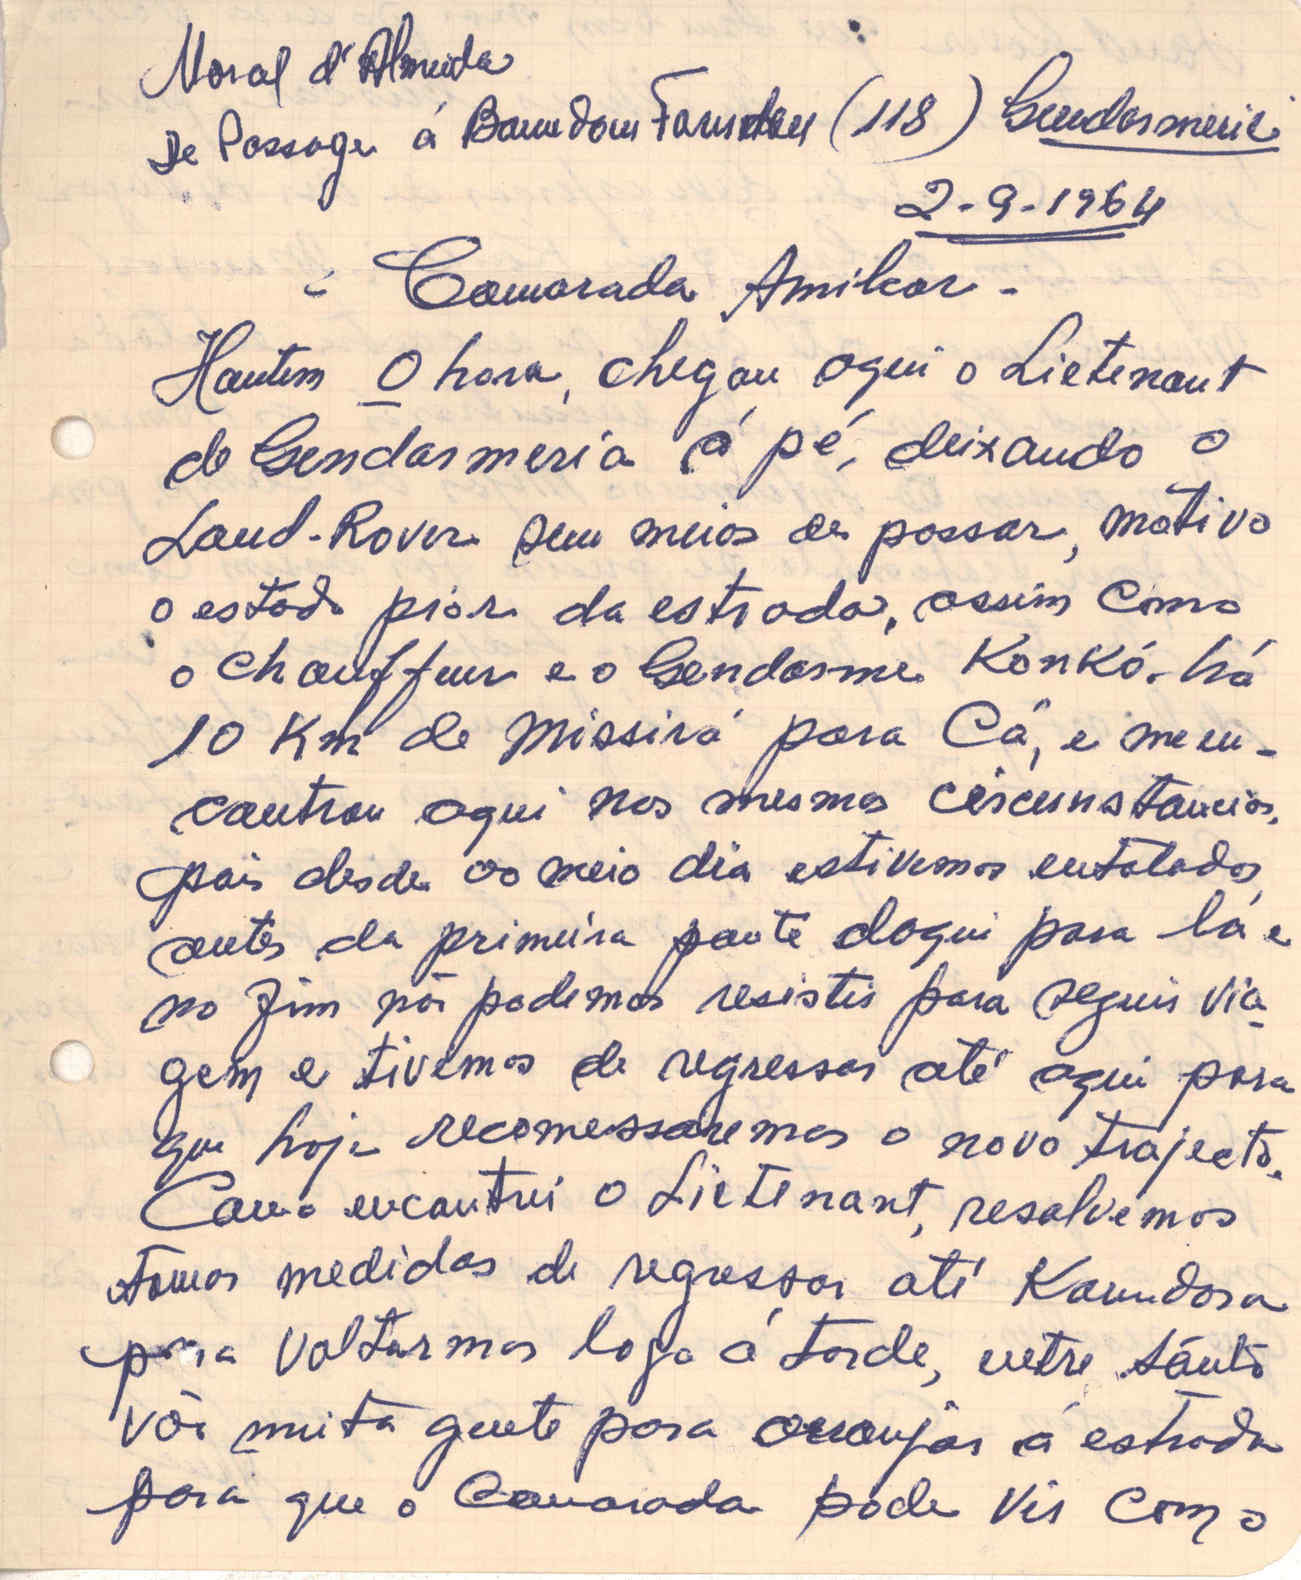 Moral d'Almeida
De Passage á Boumdou Fourdou (118) Gendarmerie
2-9-1964
- Camarada Amilcar -
Hontem 0 hora, chegou aqui o Lietenant
de Gendarmeria á pé, deixando o
Land-Rover sem meios de passar, motivo
o estado piór da estrada, assim como
o chauffeur e o Gendarme Konkó. há
10 Km de Missirá para Cá, e me en-
controu aqui nas mesmas circunstancias,
pois desde ao meio dia estivemos entalados,
antes da primeira ponte daqui para lá e
no fim não podemos resistir para seguir via-
gem e tivemos de regressar até aqui para
que hoje recomessaremos o novo trajecto.
Como encontrei o Lietenant, resolvemos
tomar medidas de regressar até Koundara
para voltarmos logo á tarde, entre tánto
vão muita gente para arranjar á estrada
para que o Camarada pode vir com o